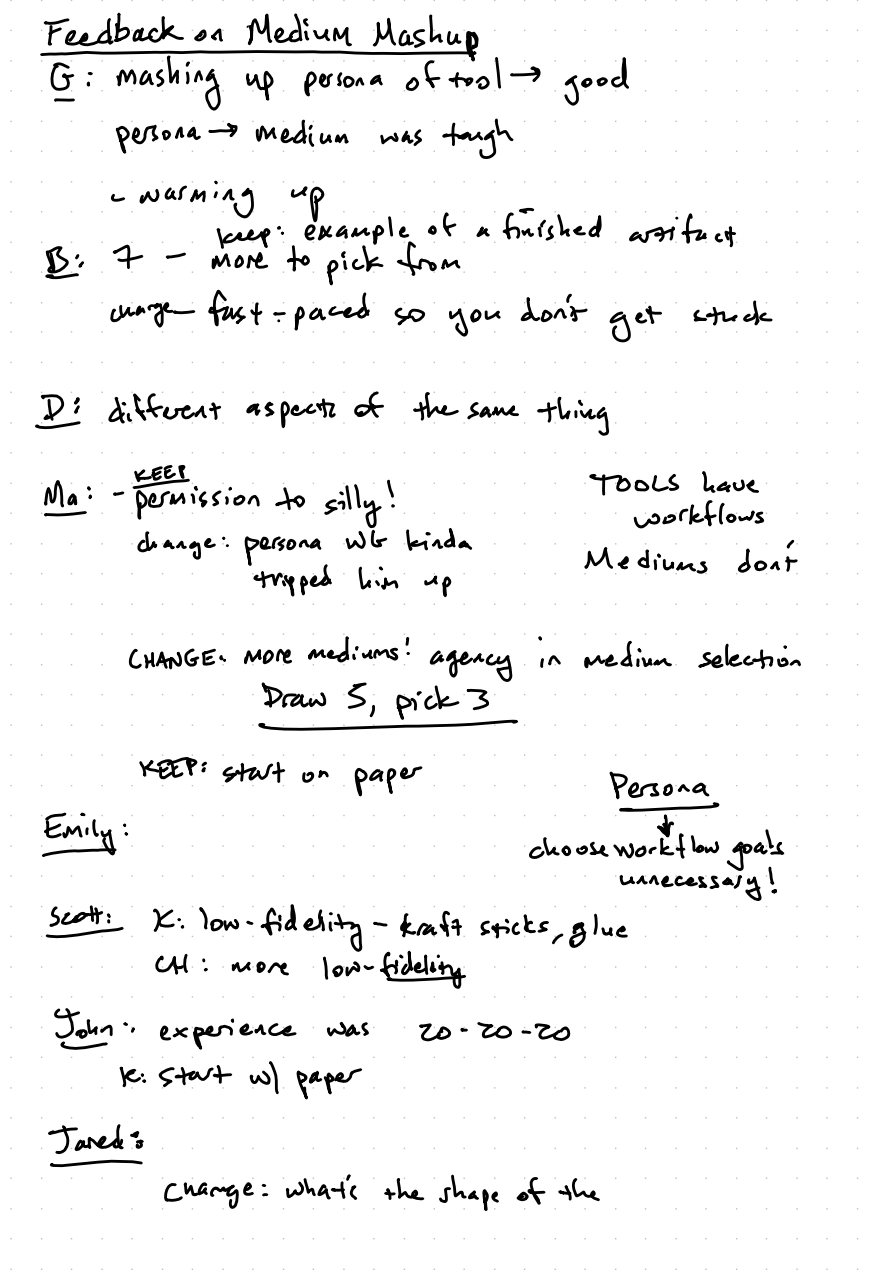 Feedback on Medium Mashup
G: mashing up persona of tool → good
persona → medium was tough
- warming up
keep: example of a finished artifact
B: 7 - more to pick from
change - fast-paced so you don't get stuck
D: different aspects of the same thing
Ma: - KEEP
permission to silly!
change: persona WG kinda
tripped him up
TOOLS have
workflows
Mediums don't
CHANGE: more mediums! agency in medium selection
Draw 5, pick 3
KEEP: start on paper
Emily:
Persona
↓
choose workflow goals
unnecessary!
Scott: K: low-fidelity - kraft sticks, glue
CH: more low-fidelity
John: experience was 20-20-20
K: start w/ paper
Jared:
Change: what's the shape of the